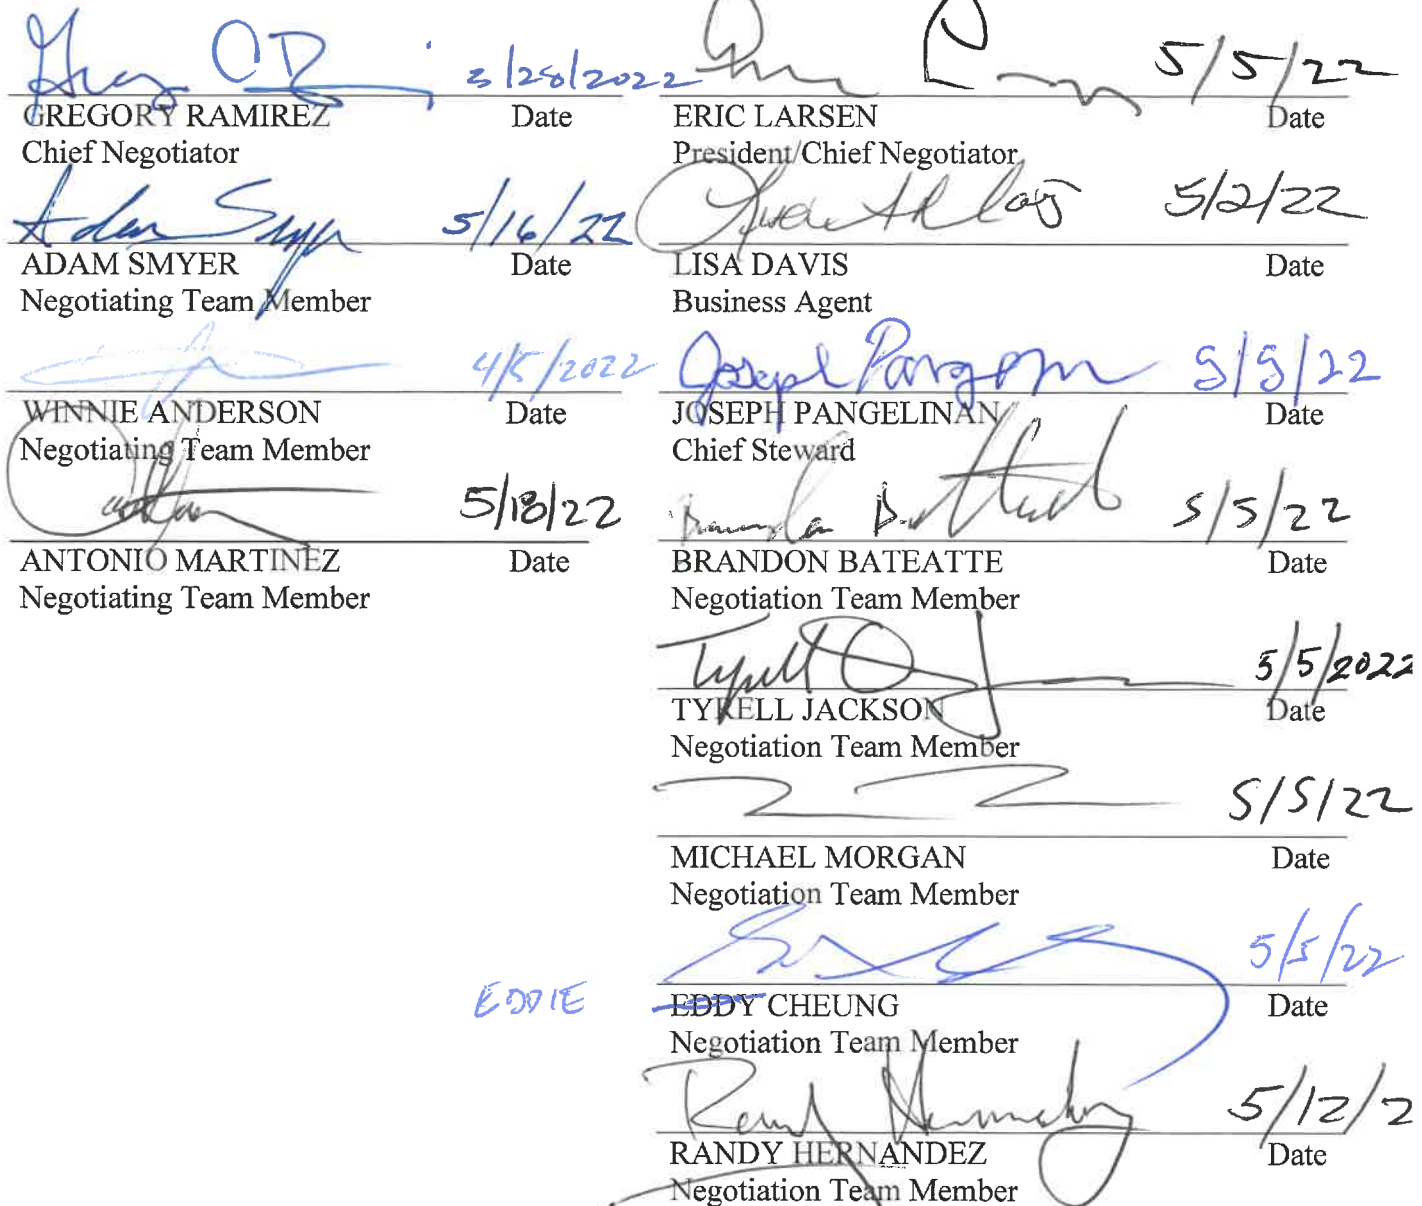 3/28/2022
GREGORY RAMIREZ Date
Chief Negotiator
Adam Smyer 5/16/22
ADAM SMYER Date
Negotiating Team Member
4/5/2022
WINNIE ANDERSON Date
Negotiating Team Member
5/18/22
ANTONIO MARTINEZ Date
Negotiating Team Member
5/5/22
ERIC LARSEN Date
President/Chief Negotiator
5/2/22
LISA DAVIS Date
Business Agent
Joseph 5/5/22
JOSEPH PANGELINAN Date
Chief Steward
5/5/22
BRANDON BATEATTE Date
Negotiation Team Member
Tyrell 5/5/2022
TYRELL JACKSON Date
Negotiation Team Member
5/5/22
MICHAEL MORGAN Date
Negotiation Team Member
5/5/22
EDDIE EDDY CHEUNG Date
Negotiation Team Member
Randy 5/12/2
RANDY HERNANDEZ Date
Negotiation Team Member